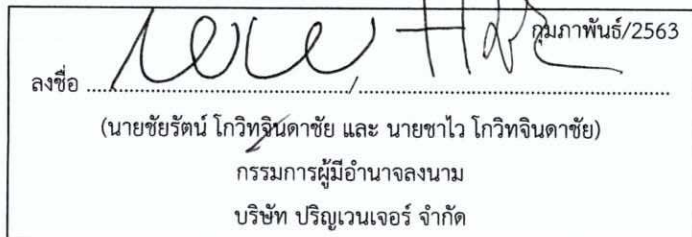 กุมภาพันธ์/2563
ลงชื่อ ............................................/....................................................
(นายชัยรัตน์ โกวิทจินดาชัย และ นายชาไว โกวิทจินดาชัย)
กรรมการผู้มีอำนาจลงนาม
บริษัท ปริญเวนเจอร์ จำกัด